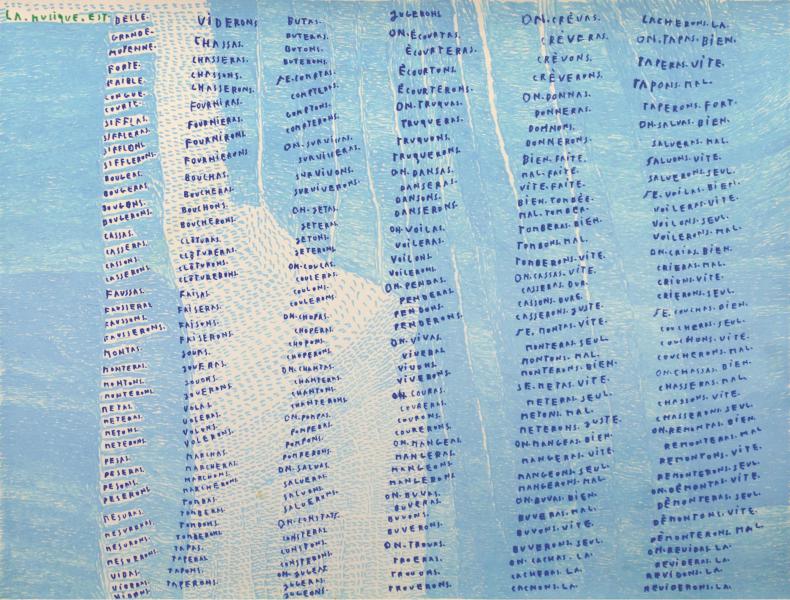 LA.MUSIQUE.EST. BELLE.
GRANDE.
MOYENNE.
FORTE.
FAIBLE.
LONGUE.
COURTE.
SIFFLAS.
SIFFLERAS.
SIFFLONS.
SIFFLERONS.
BOUGEAS.
BOUGERAS.
BOUGONS.
BOUGERONS.
CASSAS.
CASSERAS.
CASSONS.
CASSERONS.
FAUSSAS.
FAUSSERAS.
FAUSSONS.
FAUSSERONS.
MONTAS.
MONTERAS.
MONTONS.
MONTERONS.
METAS.
METERAS.
METONS.
METERONS.
PESAS.
PESERAS.
PESONS.
PESERONS.
MESURAS.
MESURERAS.
MESURONS.
MESURERONS.
VIDAS.
VIDERAS.
VIDONS.
VIDERONS
CHASSAS.
CHASSERAS.
CHASSONS.
CHASSERONS.
FOURNIRAS.
FOURNIERAS.
FOURNIRONS.
FOURNIERONS
BOUCHAS.
BOUCHERAS.
BOUCHONS.
BOUCHERONS.
CLÔTURAS.
CLÔTURERAS.
CLÔTURONS.
CLÔTURERONS.
FAISAS.
FAISERAS.
FAISONS.
FAISERONS.
JOUAS.
JOUERAS.
JOUONS.
JOUERONS.
VOLAS.
VOLERAS.
VOLONS.
VOLERONS.
MARCHAS.
MARCHERAS.
MARCHONS.
MARCHERONS.
TOMBAS.
TOMBERAS.
TOMBONS.
TOMBERONS.
TAPAS.
TAPERAS.
TAPERONS.
BUTAS.
BUTERAS.
BUTONS.
BUTERONS.
JE.COMPTAS.
COMPTERAS.
COMPTONS.
COMPTERONS.
ON.SURVIVAS.
SURVIVERAS.
SURVIVONS.
SURVIVERONS.
ON.JETAS.
JETERAS.
JETONS.
JETERONS.
ON.COULAS.
COULERAS.
COULONS.
COULERONS.
ON.CHOPAS.
CHOPERAS.
CHOPONS.
CHOPERONS.
ON.CHANTAS.
CHANTERAS.
CHANTONS.
CHANTERONS.
ON.POMPAS.
POMPERAS.
POMPONS.
POMPERONS.
ON.SALUAS.
SALUERAS.
SALUONS.
SALUERONS.
ON.JUGEAS.
JUGERAS.
JUGEONS.
JUGERONS
ON.ÉCOURTAS.
ÉCOURTERAS.
ÉCOURTONS.
ÉCOURTERONS.
ON.TRUQUAS.
TRUQUERAS.
TRUQUONS.
TRUQUERONS.
ON.DANSAS.
DANSERAS.
DANSONS.
DANSERONS.
ON.VOILAS.
VOILERAS.
VOILONS.
VOILERONS.
ON.PENDAS.
PENDERAS.
PENDONS.
PENDERONS.
ON.VIVAS.
VIVERAS.
VIVONS.
VIVERONS.
ON.COURAS.
COURERAS.
COURONS.
COURERONS.
ON.MANGEAS.
MANGERAS.
MANGEONS.
MANGERONS.
ON.BUVAS.
BUVERAS.
BUVONS.
BUVERONS.
ON.TROUAS.
TROUERAS.
TROUONS.
TROUERONS.
ON.CRÉVAS.
CRÈVERAS.
CRÈVONS.
CRÈVERONS.
ON.DONNAS.
DONNERAS.
DONNONS.
DONNERONS.
BIEN.FAITE.
MAL.FAITE.
VITE.FAITE.
BIEN.TOMBÉE.
MAL.TOMBÉE.
TOMBERAS.BIEN.
TOMBONS.MAL.
TOMBERONS.VITE.
ON.CASSAS.VITE.
CASSERAS.DUR.
CASSONS.DURE.
CASSERONS.JUSTE.
JE.MONTAS.VITE.
MONTERAS.SEUL.
MONTONS.MAL.
MONTERONS.BIEN.
JE.METAS.VITE.
METERAS.SEUL.
METONS.MAL.
METERONS.JUSTE.
ON.MANGEAS.BIEN.
MANGERAS.VITE.
MANGEONS.SEUL.
MANGERONS.MAL.
ON.BUVAS.BIEN.
BUVERAS.MAL.
BUVONS.VITE.
BUVERONS.SEUL.
ON.CACHAS.LA.
CACHERAS.LA.
CACHONS.LA.
CACHERONS.LA.
ON.TAPAS.BIEN.
TAPERAS.VITE.
TAPONS.MAL.
TAPERONS.FORT.
ON.SALUAS.BIEN.
SALUERAS.MAL.
SALUONS.VITE.
SALUERONS.SEUL.
JE.VOILAS.BIEN.
VOILERAS.VITE.
VOILONS.SEUL.
VOILERONS.MAL.
ON.CRIAS.BIEN.
CRIERAS.MAL.
CRIONS.VITE.
CRIERONS.SEUL.
JE.COUCHAS.BIEN.
COUCHERAS.SEUL.
COUCHONS.VITE.
COUCHERONS.MAL.
ON.CHASSAS.BIEN.
CHASSERAS.MAL
CHASSONS.VITE.
CHASSERONS.SEUL.
ON.REMONTAS.BIEN.
REMONTERAS.MAL
REMONTONS.VITE.
REMONTERONS.SEUL.
ON.DÉMONTAS.VITE.
DÉMONTERAS.SEUL.
DÉMONTONS.VITE.
DÉMONTERONS.MAL.
ON.REVIDAS.LA.
REVIDERAS.LA.
REVIDONS.LA.
REVIDERONS.LA.